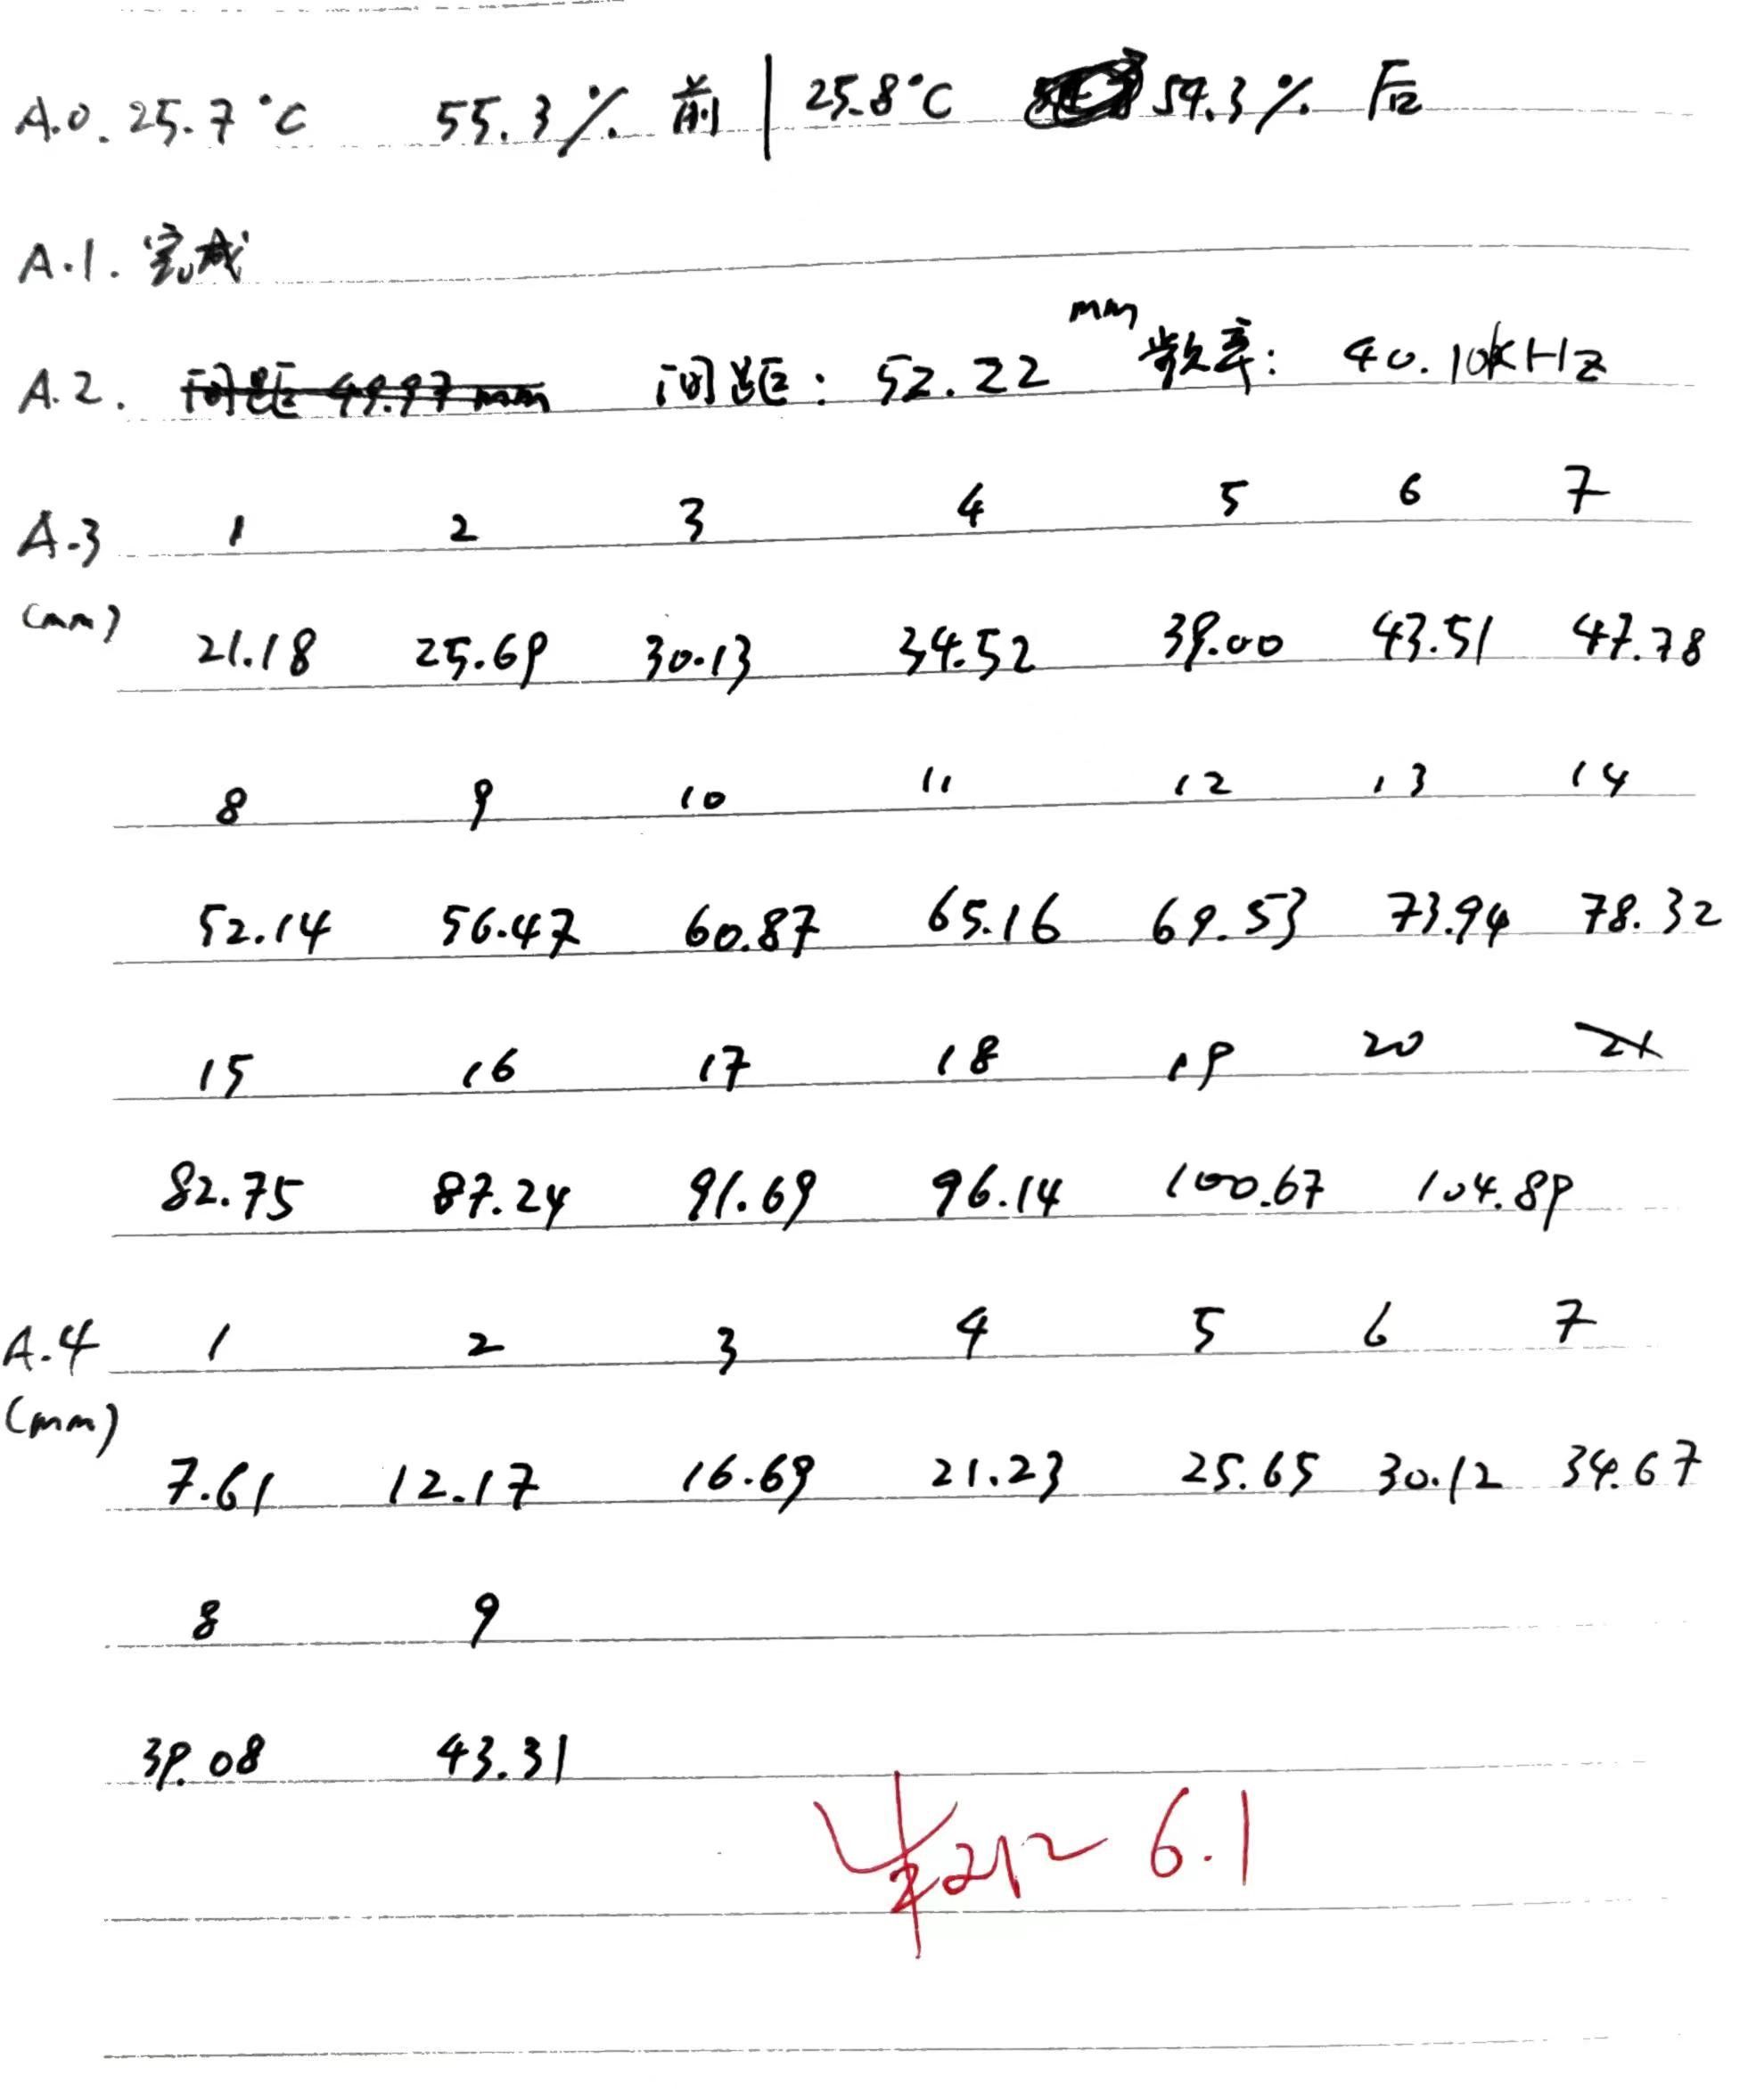 A.0. 25.7°C 55.3% 前 | 25.8°C 54.3% 后
A.1. 完成
A.2. 间距 49.97mm 间距: 52.22 mm 频率: 40.10kHz
A.3 1 2 3 4 5 6 7
(mm) 21.18 25.69 30.13 34.52 39.00 43.51 47.78
8 9 10 11 12 13 14
52.14 56.47 60.87 65.16 69.53 73.94 78.32
15 16 17 18 19 20 21
82.75 87.24 91.69 96.14 100.67 104.89
A.4 1 2 3 4 5 6 7
(mm) 7.61 12.17 16.69 21.23 25.65 30.12 34.67
8 9
39.08 43.31
6.1